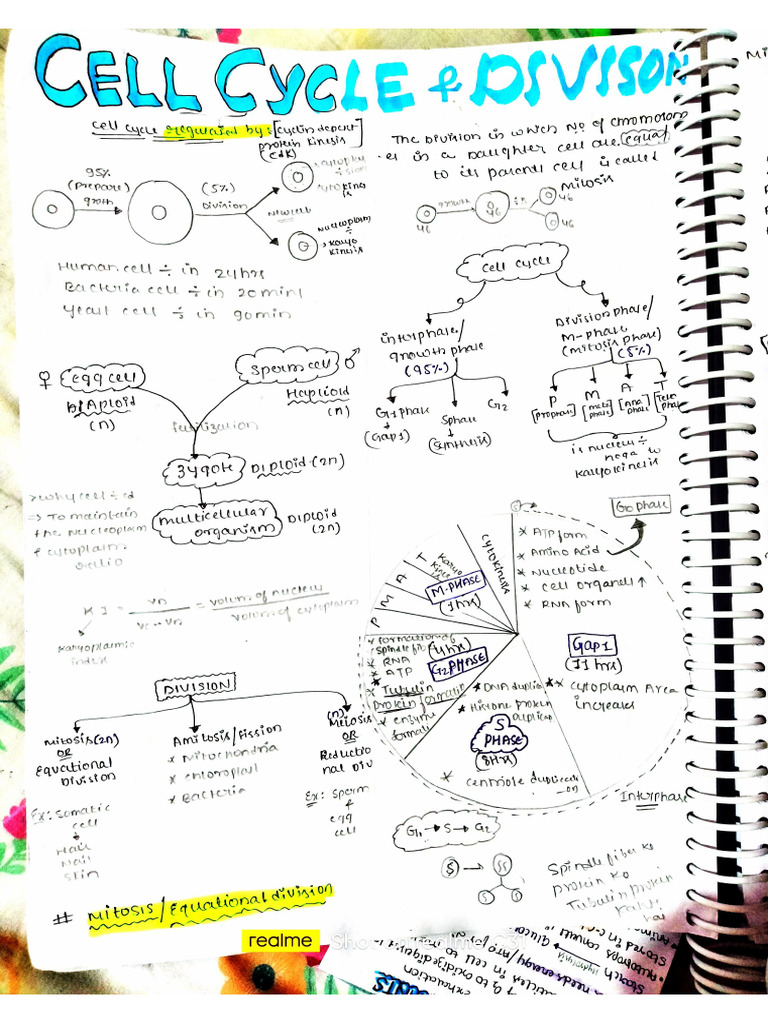 CELL CYCLE & DIVISON
cell cycle regulated by : [cyclin depent
protein kinesis
(cdk)]
95%
(prepare)
growth
(5%)
Division
New cell
Human cell ÷ in 24 hrs
Bacteria cell ÷ in 20 min
Yeast cell ÷s in 90 min
The Division in which No of chromosom
es in a Daughter cell are equal
to its parent cell is called
Mitosis
46
growth
46
46
46
cell cycle
interphase/
growth phase
(95%)
G1 phase
(Gap1)
S phase
(synthesis)
G2
Division phase/
M-phase
(mitosis phase)
(5%)
P
[prophase]
M
[meta phase]
A
[Ana phase]
T
[Telo phase]
is nucleus ÷
Karyokinesis
♀
egg cell
(n)
Sperm cell
♂
Haploid
(n)
fertilization
zygote
DIPLOID (2n)
multicellular
organism
DIPLOID
(2n)
> why cell ÷ d
=> To maintain
the Nucleoplasm
& cytoplasm
KI = Vn / Vc - Vn = volum. of nucleus / volum. of cytoplasm
Karyoplasmic
index
DIVISION
Mitosis (2n)
OR
Equational
Division
Ex: Somatic
cell
Hair
Nail
Skin
Amitosis/Fission
* Mitochondria
* chloroplast
* Bacteria
(n)
Meiosis
OR
Reductio
nal Div
Ex: Sperm
&
egg
cell
# Mitosis/Equational division
G0 phase
* ATP form
* Amino Acid
* Nucleotide
* Cell organell ↑
* RNA form
Gap 1
(11 hrs)
** cytoplasm Area
increases
CYTOKINESIS
Karyo
Kinesis
M-PHASE
(1 hrs)
T
A
M
P
* formation of
spindle fib
* RNA
* ATP
(4 hrs)
G2 PHASE
* Tubulin
protein formatio
* enzyme
formati
* DNA duplica
* Histone protein
duplica
S
PHASE
(8 hrs)
* centriole duplicati
on
Interphase
G1 → S → G2
Spindle fiber ko
protein ko
Tubulin protein
Kahte
hai
realme Shot on realme C31